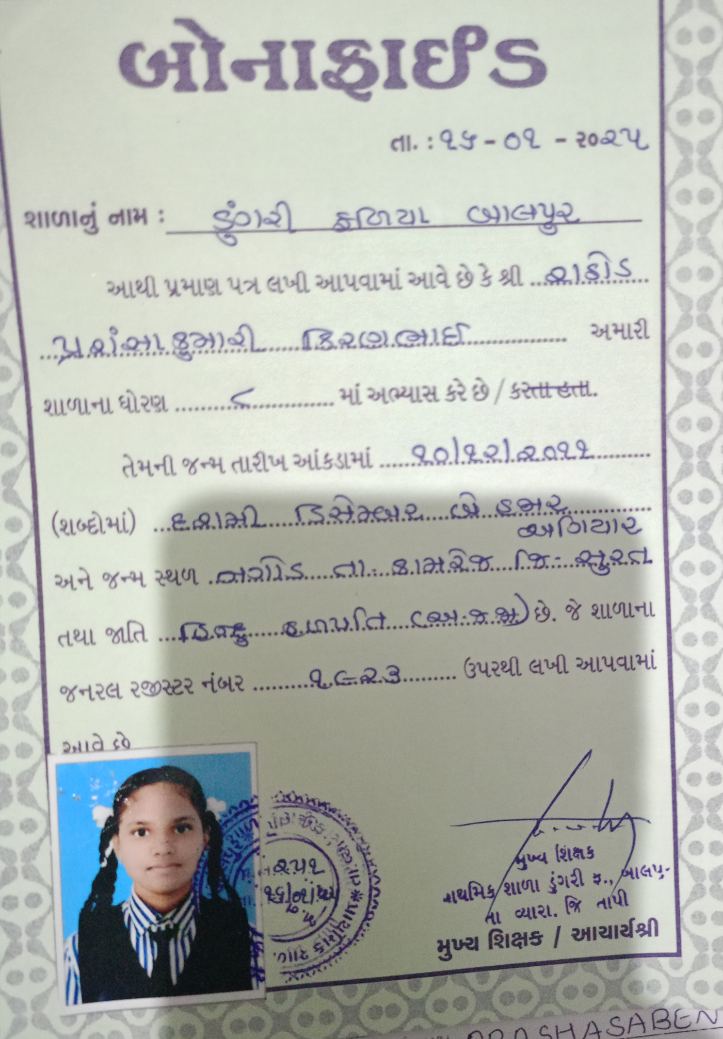 બોનાફાઈડ
તા. : ૧૬ - ૦૧ - ૨૦૨૫
શાળાનું નામ : ડુંગરી ફળિયા બાલપુર
આથી પ્રમાણ પત્ર લખી આપવામાં આવે છે કે શ્રી રાઠોડ
પ્રશંસાકુમારી કિરણભાઈ અમારી
શાળાના ધોરણ ૮ માં અભ્યાસ કરે છે / કરતા હતા.
તેમની જન્મ તારીખ આંકડામાં ૧૦/૧૨/૨૦૧૧
(શબ્દોમાં) દશમી ડિસેમ્બર બે હજાર
અગિયાર
અને જન્મ સ્થળ તા. કામરેજ જિ- સુરત
તથા જાતિ હિન્દુ હળપતિ (અ.જ.જા) છે. જે શાળાના
જનરલ રજીસ્ટર નંબર ૧૯૨૩ ઉપરથી લખી આપવામાં
આવે છે
મુખ્ય શિક્ષક
પ્રાથમિક શાળા ડુંગરી ફ., બાલપુર
તા વ્યારા. જિ તાપી
મુખ્ય શિક્ષક / આચાર્યશ્રી
PRASHASABEN